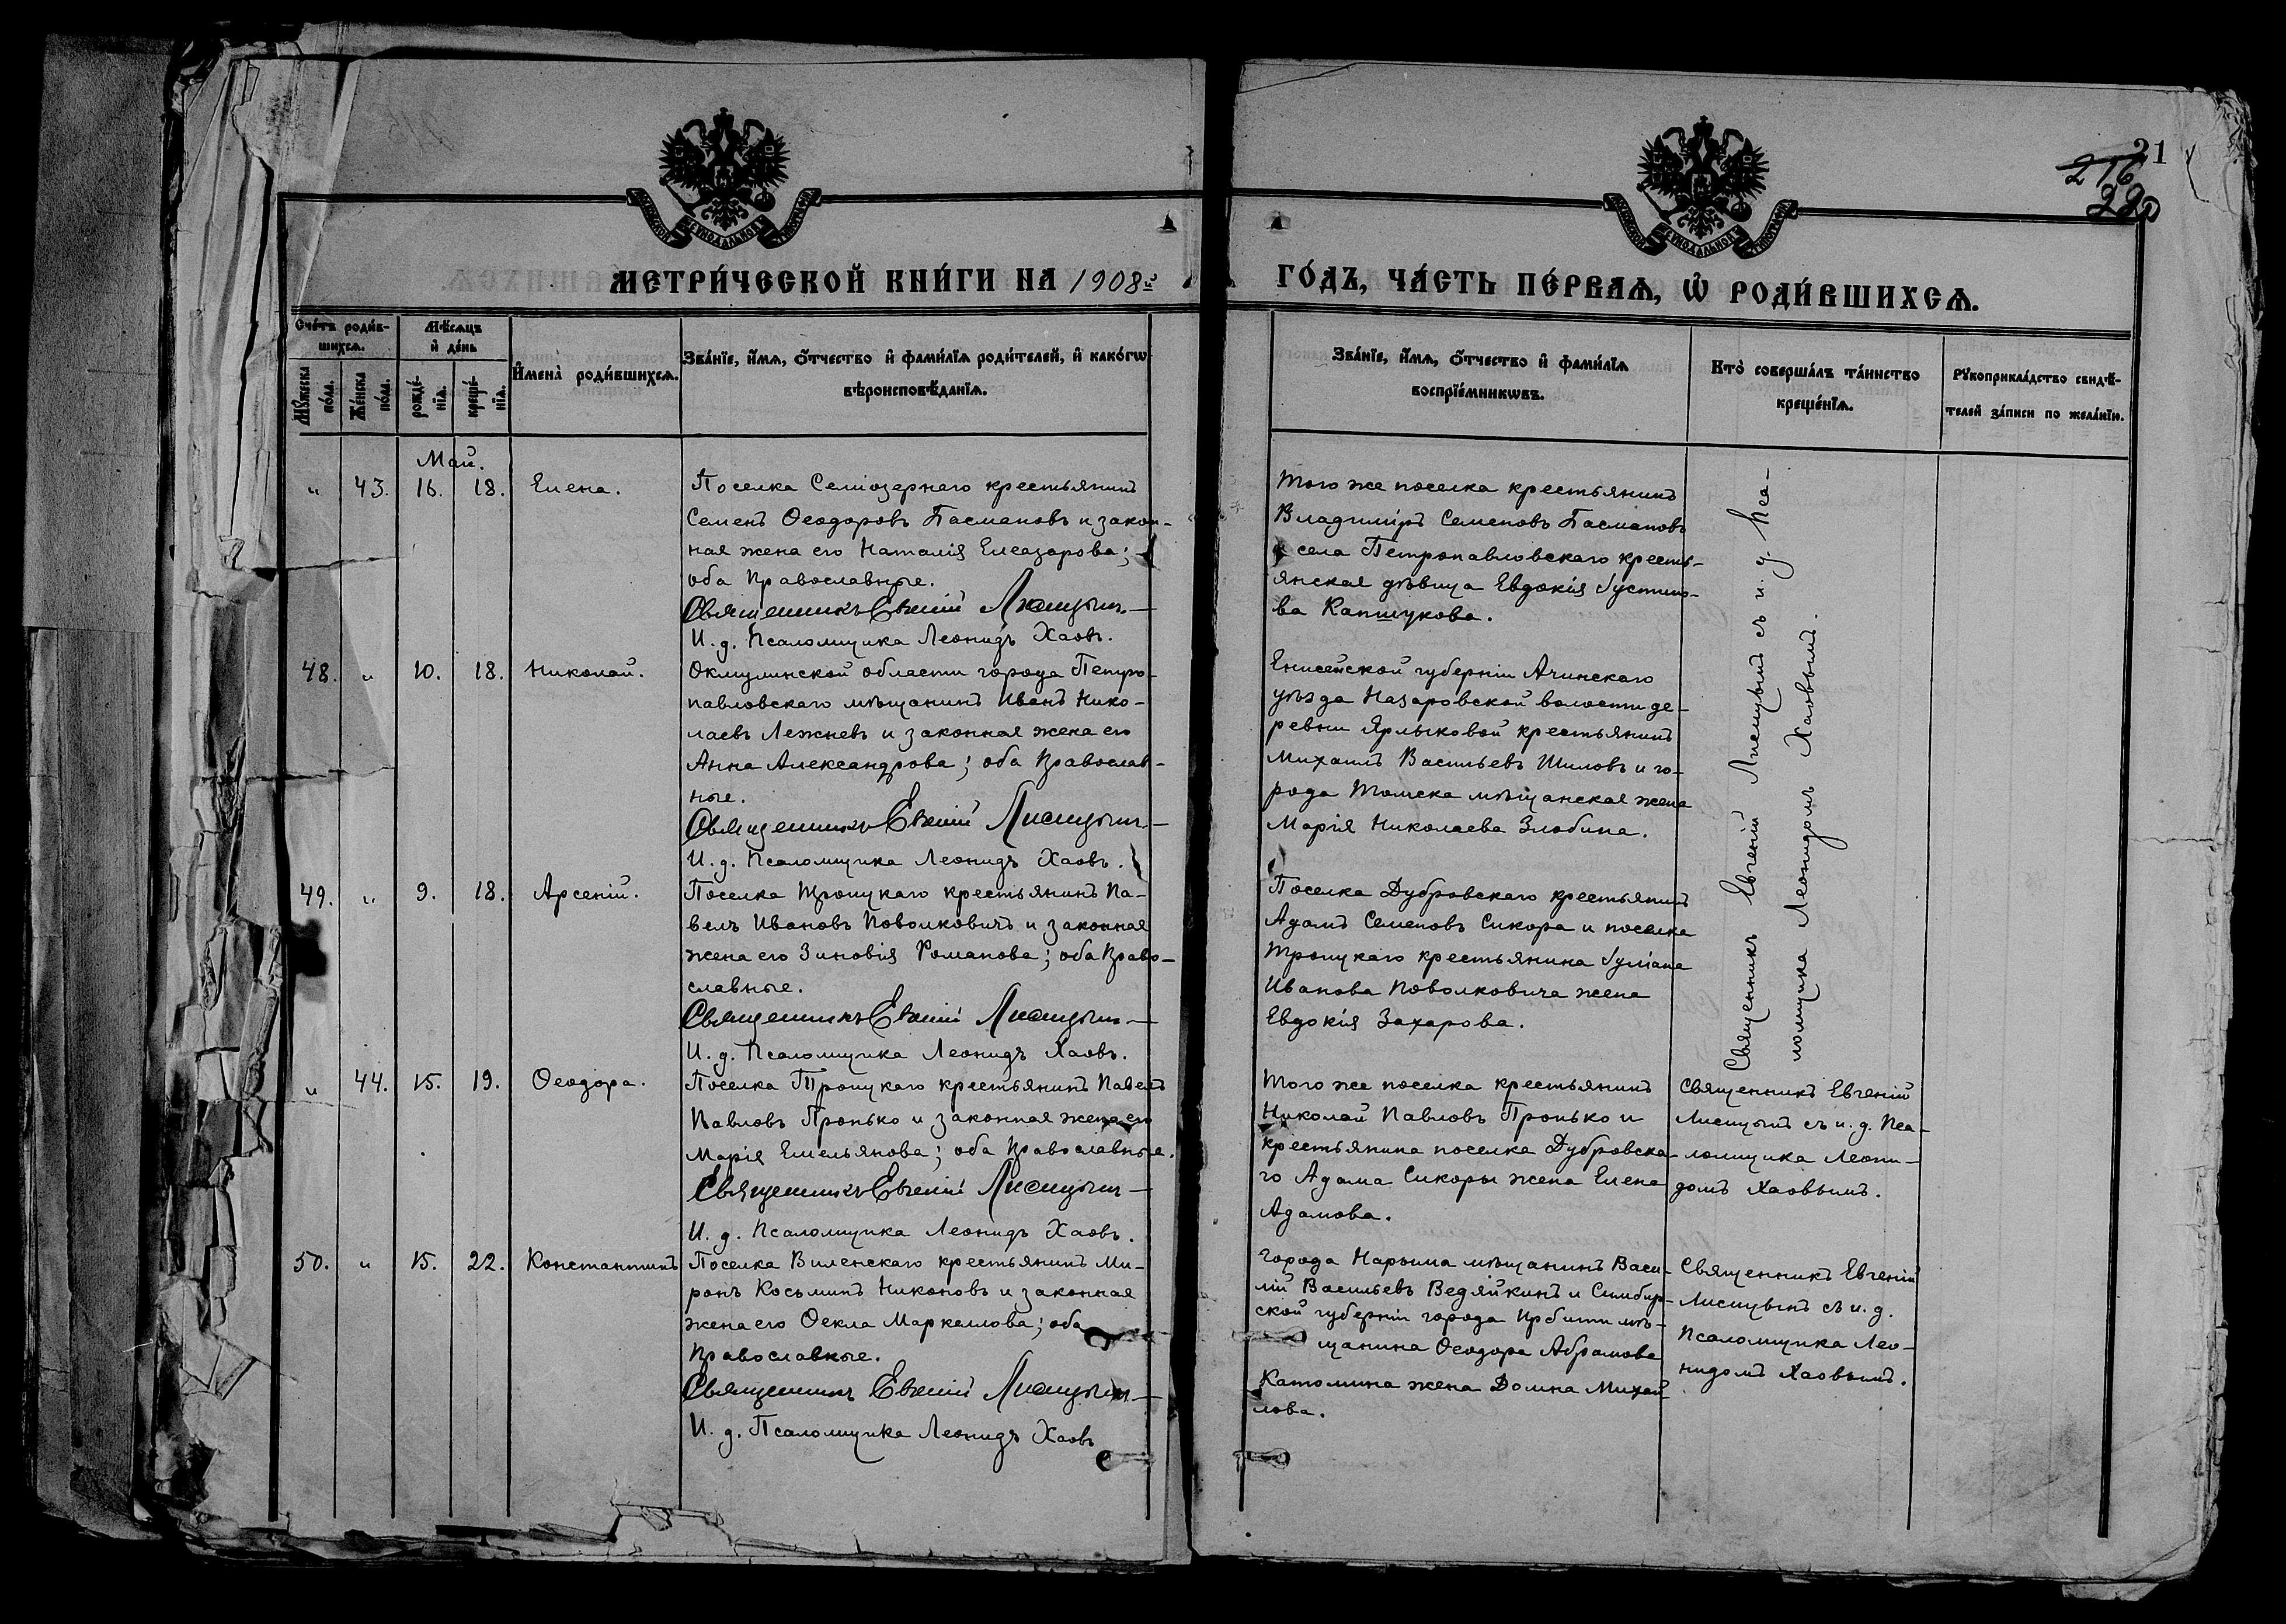 21
216
220
МЕТРИ́ЧЕСКОЙ КНИ́ГИ НА 1908й
ГО́ДЪ, ЧА́СТЬ ПЕ́РВАѦ, Ѽ РОДИ́ВШИХСѦ.
Сче́тъ роди́в-
шихсѧ.
Мꙋ́жеска по́ла.
Же́нска по́ла.
Мѣ́сѧцъ
и҆ де́нь
рожде́-
нїѧ.
креще́-
нїѧ.
И҆мена̀ роди́вшихсѧ.
Зва́нїе, и҆́мѧ, ѻ҆́тчество и҆ фами́лїѧ роди́телей, и҆ како́гѡ
вѣроисповѣ́данїѧ.
Зва́нїе, и҆́мѧ, ѻ҆́тчество и҆ фами́лїѧ
воспрїе́мникѡвъ.
Кто̀ соверша́лъ та́инство
креще́нїѧ.
Рꙋкоприкла́дство свидѣ́-
телей за́писи по жела́нїю.
Май.
" 43. 16. 18. Елена.
Поселка Семіозернаго крестьянинъ
Семенъ Ѳеодоровъ Басмановъ и закон-
ная жена его Наталія Елеазарова;
оба православные.
Священникъ Евгеній Лисицынъ
И. д. Псаломщика Леонидъ Хаовъ.
Того же поселка крестьянинъ
Владиміръ Семеновъ Басмановъ
и села Петропавловскаго кресть-
янская дѣвица Евдокія Іустино-
ва Капшукова.
Священникъ Евгеній Лисицынъ съ и. д. Пса-
ломщика Леонидомъ Хаовымъ.
48. " 10. 18. Николай.
Окмулинской области города Петро-
павловскаго мѣщанинъ Иванъ Нико-
лаевъ Лежневъ и законная жена его
Анна Александрова; оба православ-
ные.
Священникъ Евгеній Лисицынъ
И. д. Псаломщика Леонидъ Хаовъ.
Енисейской губерніи Ачинскаго
уѣзда Назаровской волости де-
ревни Ярлыковой крестьянинъ
Михаилъ Васильевъ Шиловъ и го-
рода Томска мѣщанская жена
Марія Николаева Злобина.
49. " 9. 18. Арсеній.
Поселка Троицкаго крестьянинъ Па-
велъ Ивановъ Поволковичъ и законная
жена его Зиновія Романова; оба право-
славные.
Священникъ Евгеній Лисицынъ
И. д. Псаломщика Леонидъ Хаовъ.
Поселка Дубровскаго крестьянинъ
Адамъ Семеновъ Сикора и поселка
Троицкаго крестьянина Іуліана
Иванова Поволковича жена
Евдокія Захарова.
" 44. 15. 19. Ѳеодора.
Поселка Троицкаго крестьянинъ Павелъ
Павловъ Пронько и законная жена его
Марія Емельянова; оба православные.
Священникъ Евгеній Лисицынъ
И. д. Псаломщика Леонидъ Хаовъ.
Того же поселка крестьянинъ
Николай Павловъ Пронько и
крестьянина поселка Дубровска-
го Адама Сикоры жена Елена
Адамова.
Священникъ Евгеній
Лисицынъ съ и. д. Пса-
ломщика Леони-
домъ Хаовымъ.
50. " 15. 22. Константинъ
Поселка Виленскаго крестьянинъ Ми-
ронъ Косьминъ Никоновъ и законная
жена его Ѳекла Маркеллова; оба
православные.
Священникъ Евгеній Лисицынъ
И. д. Псаломщика Леонидъ Хаовъ
Города Нарыма мѣщанинъ Васи-
лій Васильевъ Ведяйкинъ и Симбир-
ской губерніи города Ирбити мѣ-
щанина Ѳеодора Абрамова
Катомина жена Домна Михай-
лова.
Священникъ Евгеній
Лисицынъ съ и. д.
Псаломщика Лео-
нидомъ Хаовымъ.